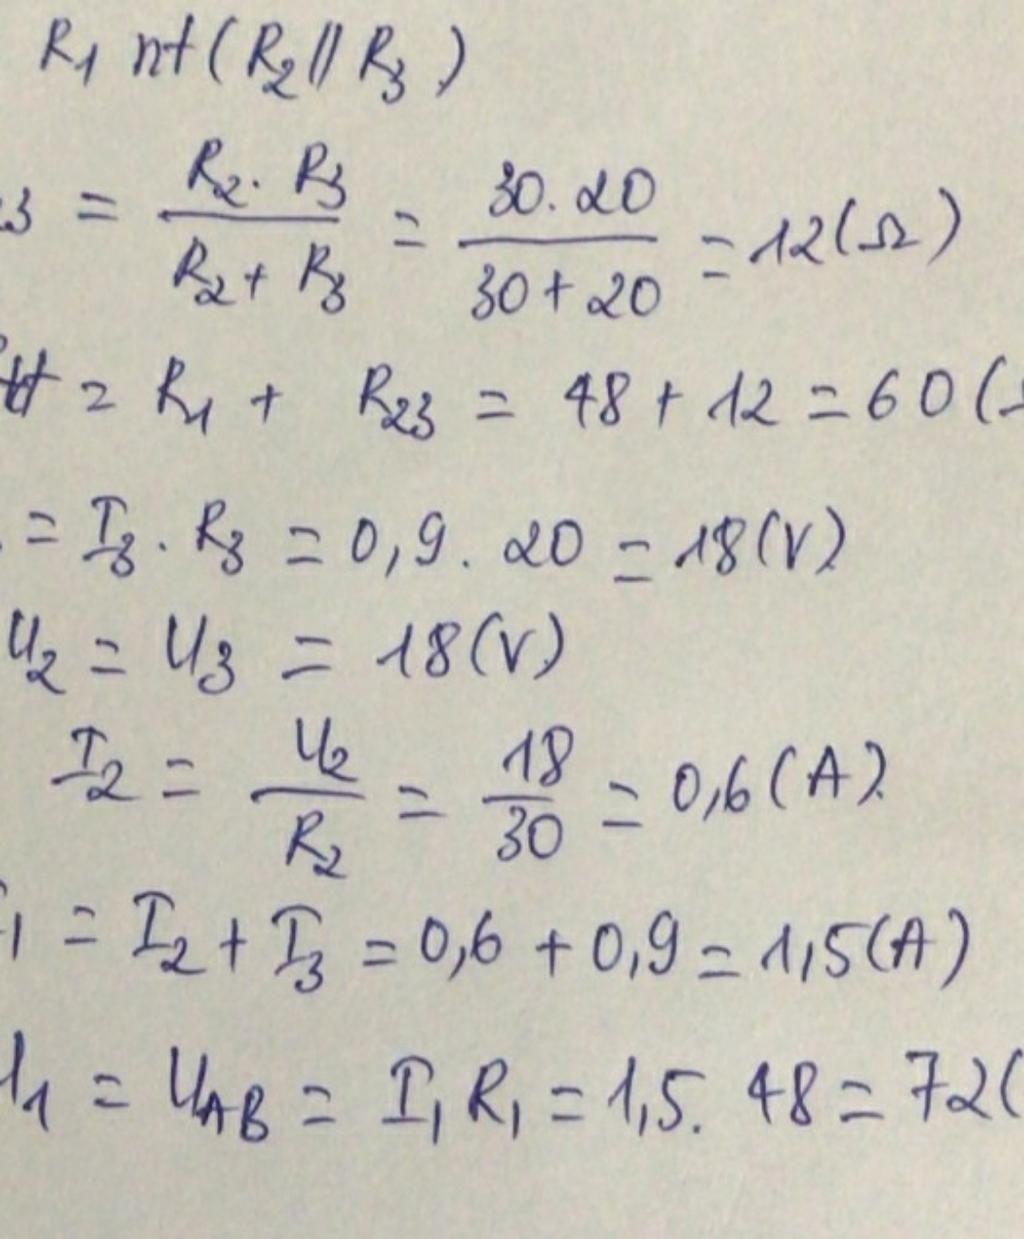 R₁ nt (R₂ // R₃)
₃ = (R₂ . R₃)/(R₂ + R₃) = (30 . 20)/(30 + 20) = 12 (Ω)
tđ = R₁ + R₂₃ = 48 + 12 = 60 (
= I₃ . R₃ = 0,9 . 20 = 18 (V)
U₂ = U₃ = 18 (V)
I₂ = U₂/R₂ = 18/30 = 0,6 (A)
₁ = I₂ + I₃ = 0,6 + 0,9 = 1,5 (A)
₁ = U_AB = I₁ R₁ = 1,5 . 48 = 72 (